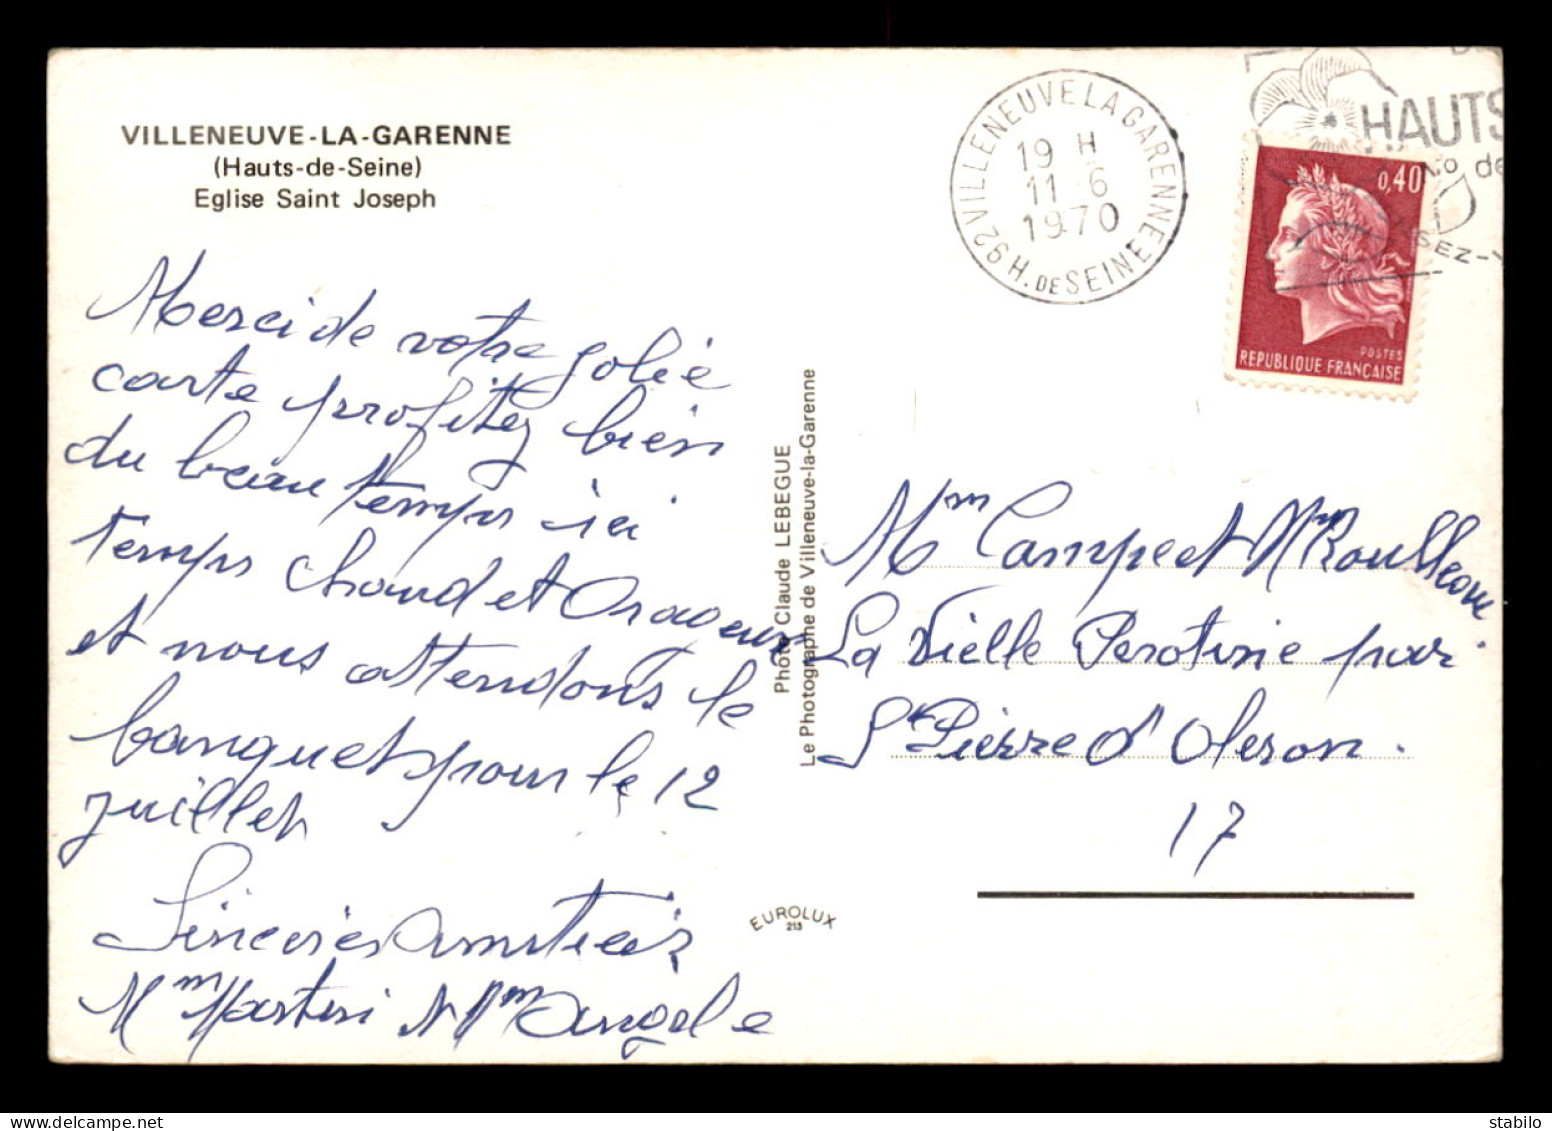 VILLENEUVE-LA-GARENNE
(Hauts-de-Seine)
Eglise Saint Joseph
Merci de votre jolie
carte profitez bien
du beau temps ici
temps chaud et Orageux
et nous attendons le
banquet pour le 12
juillet
Sincères amitiés
Mm Martini et Mm Angele
Photo Claude LEBEGUE
Le Photographe de Villeneuve-la-Garenne
EUROLUX
213
92 VILLENEUVE LA GARENNE
H. DE SEINE
19 H
11 6
1970
HAUTS
No de
0,40
POSTES
REPUBLIQUE FRANÇAISE
Mm Campet et Mr Roulleau
La Vielle Perotine par
St Pierre d'Oleron.
17
stabilo